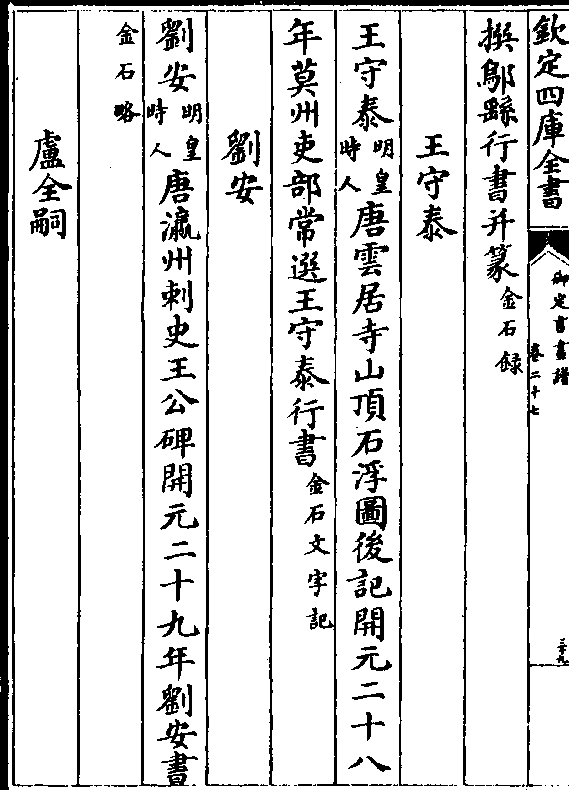 欽定四庫全書
御定書畫譜
卷二十七
三十九
撰鄔繇行書并篆金石録
王守泰
王守泰明皇時人唐雲居寺山頂石浮圖後記開元二十八
年莫州吏部常選王守泰行書金石文字記
劉安
劉安明皇時人唐瀛州刺史王公碑開元二十九年劉安書
金石略
盧全嗣